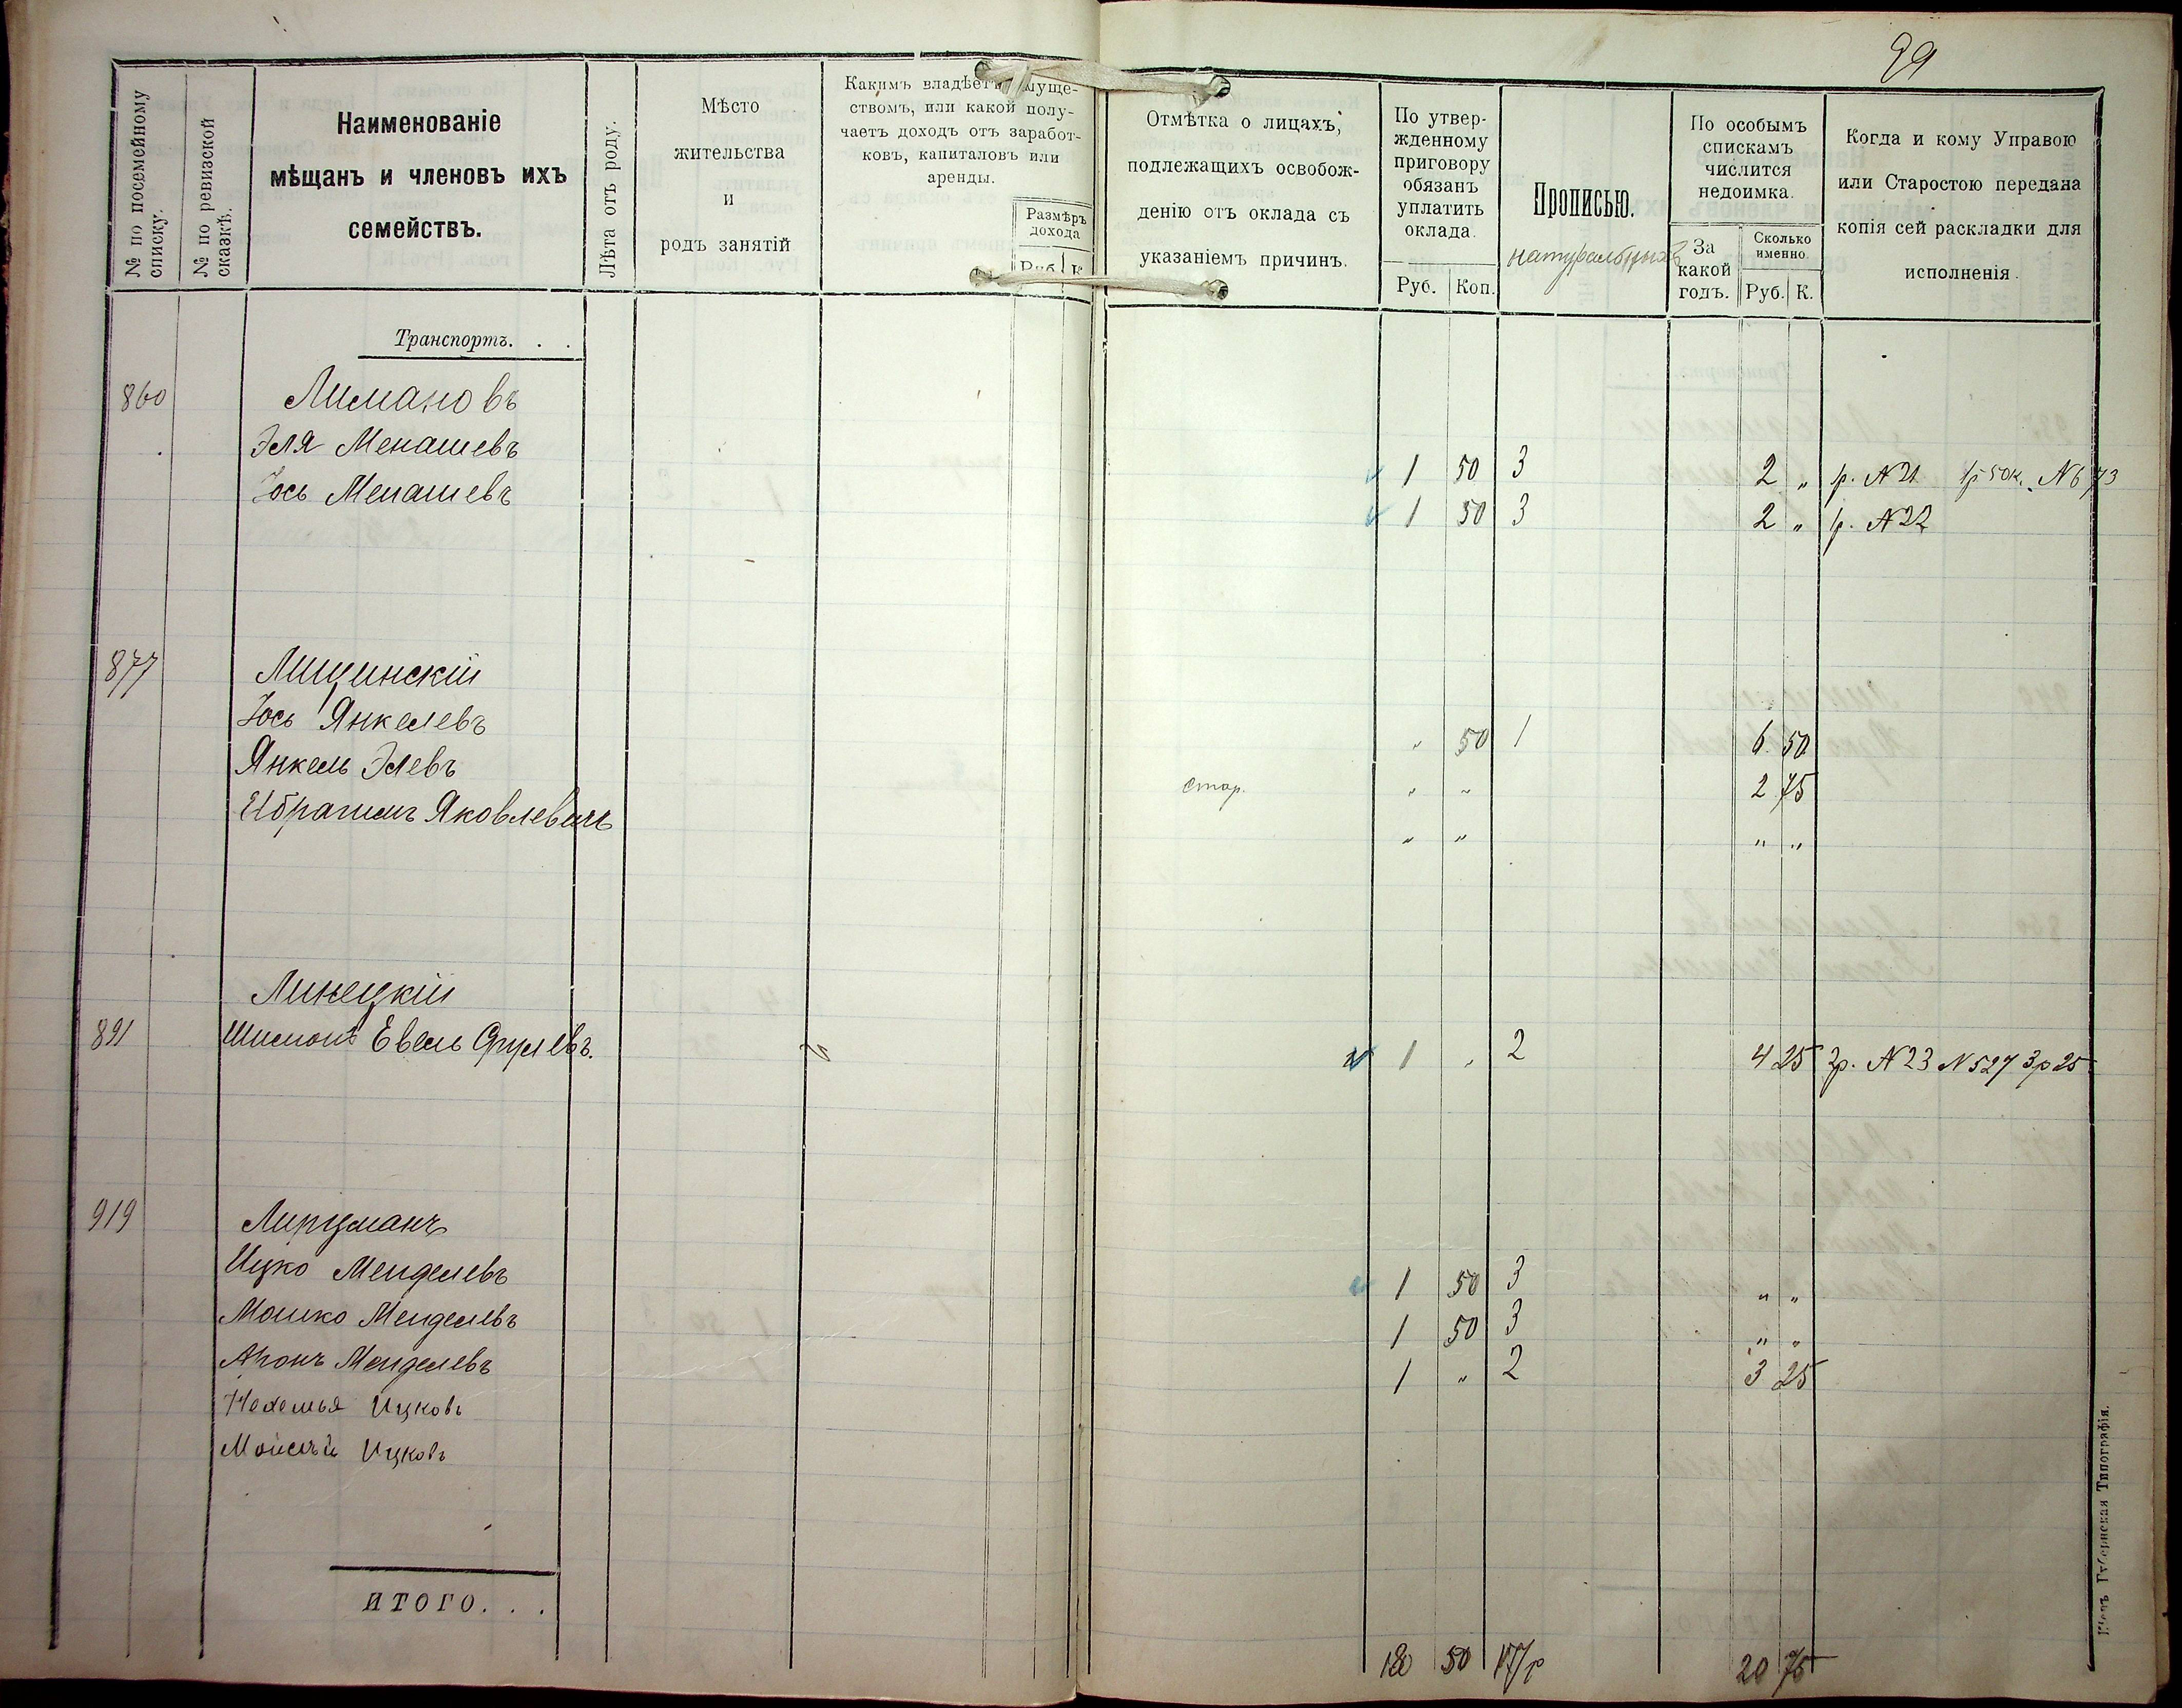 99
№ по посемейному
списку.
№ по ревизской
сказкѣ.
Наименованіе
мѣщанъ и членовъ ихъ
семействъ.
Лѣта отъ роду.
Мѣсто
жительства
и
родъ занятій
Какимъ владѣетъ имуще-
ствомъ, или какой полу-
чаетъ доходъ отъ заработ-
ковъ, капиталовъ или
аренды.
Размѣръ
дохода
Руб. К.
Отмѣтка о лицахъ,
подлежащихъ освобож-
денію отъ оклада съ
указаніемъ причинъ.
По утвер-
жденному
приговору
обязанъ
уплатить
оклада.
Руб. Коп.
Прописью.
натуральныхъ
По особымъ
спискамъ
числится
недоимка.
За
какой
годъ.
Сколько
именно.
Руб. К.
Когда и кому Управою
или Старостою передана
копія сей раскладки для
исполненія.
Транспортъ. . .
860 Лимановъ
Эля Менашевъ 1 50 3 2 „ 1р. N 21 1р 50к. N 673
Іось Менашевъ 1 50 3 2 „ 1р. N 22
877 Лищинскій
Іось Янкелевъ „ 50 1 6 50
Янкель Элевъ стар. „ „ 2 75
Ибрагимъ Яковлевичъ „ „ „ „
Линецкій
891 Шимонъ Евель Срулевъ. 1 „ 2 4 25 2р. N 23 N 527 3р 25
919 Лирцманъ
Ицко Менделевъ 1 50 3 „ „
Мошко Менделевъ 1 50 3 „ „
Аронъ Менделевъ 1 „ 2 3 25
Нехемья Ицковъ
Мойсей Ицковъ
ИТОГО. . .
50 17р 20 75
Кіевъ Губернская Типографія.